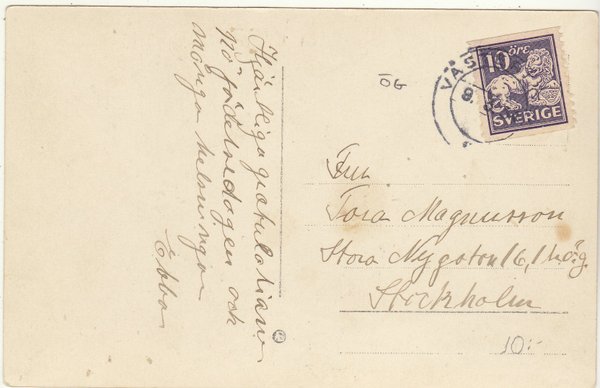 Hjärtliga gratulationer
på födelsedagen och
många helsningar
Ebba
ÖG
VÄS
8.
10 ÖRE
SVERIGE
Fru
Tora Magnusson
Stora Nygatan 16, 1 hög.
Stockholm
10:-